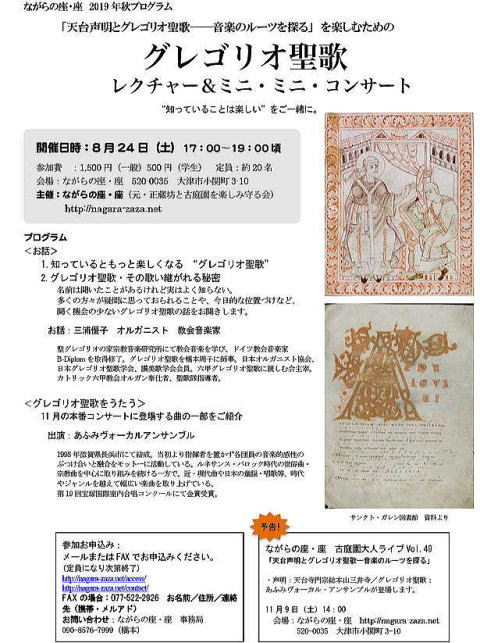 ながらの座・座 2019年秋プログラム
「天台声明とグレゴリオ聖歌──音楽のルーツを探る」を楽しむための
グレゴリオ聖歌
レクチャー＆ミニ・ミニ・コンサート
"知っていることは楽しい" をご一緒に。
開催日時：8月24日（土）17：00～19：00頃
参加費 ：1,500円（一般）500円（学生） 定員：約20名
会場：ながらの座・座 520-0035 大津市小関町3-10
主催：ながらの座・座（元・正蔵坊と古庭園を楽しみ守る会）
http://nagara-zaza.net
プログラム
＜お話＞
1. 知っているともっと楽しくなる “グレゴリオ聖歌”
2. グレゴリオ聖歌・その歌い継がれる秘密
名前は聞いたことがあるけれど実はよく知らない。
多くの方々が疑問に思っておられることや、今日的な位置づけなど、
聞く機会の少ないグレゴリオ聖歌の話をお聞きします。
お話：三浦優子 オルガニスト 教会音楽家
聖グレゴリオの家宗教音楽研究所にて教会音楽を学び、ドイツ教会音楽家
B-Diplomを取得修了。グレゴリオ聖歌を橋本周子に師事。日本オルガニスト協会、
日本グレゴリオ聖歌学会、讃美歌学会会員。六甲グレゴリオ聖歌に親しむ会主宰。
カトリック六甲教会オルガン奉仕者、聖歌隊指導者。
＜グレゴリオ聖歌をうたう＞
11月の本番コンサートに登場する曲の一部をご紹介
出演：あふみヴォーカルアンサンブル
1998年滋賀県長浜市にて結成。当初より指揮者を置かず各団員の音楽的感性の
ぶつけ合いと融合をモットーに活動している。ルネサンス・バロック時代の世俗曲・
宗教曲を中心に取り組みを続ける一方で、近・現代曲や日本の童謡・唱歌等、時代
やジャンルを越えて幅広い楽曲を取り上げている。
第19回宝塚国際室内合唱コンクールにて金賞受賞。
サンクト・ガレン図書館 資料より
参加お申込み：
メールまたはFAXでお申込みください。
（定員になり次第終了）
http://nagara-zaza.net/access/
http://nagara-zaza.net/contact/
FAXの場合：077-522-2926 お名前／住所／連絡
先（携帯・メルアド）
お問い合わせ：ながらの座・座 事務局
090-8576-7999（橋本）
予告!
ながらの座・座 古庭園大人ライブ Vol.49
「天台声明とグレゴリオ聖歌ー音楽のルーツを探る」
・声明：天台寺門宗総本山三井寺／グレゴリオ聖歌：
あふみヴォーカル・アンサンブルが登場します。
11月9日（土）14：00
会場：ながらの座・座 http://nagara-zaza.net
520-0035 大津市小関町3-10